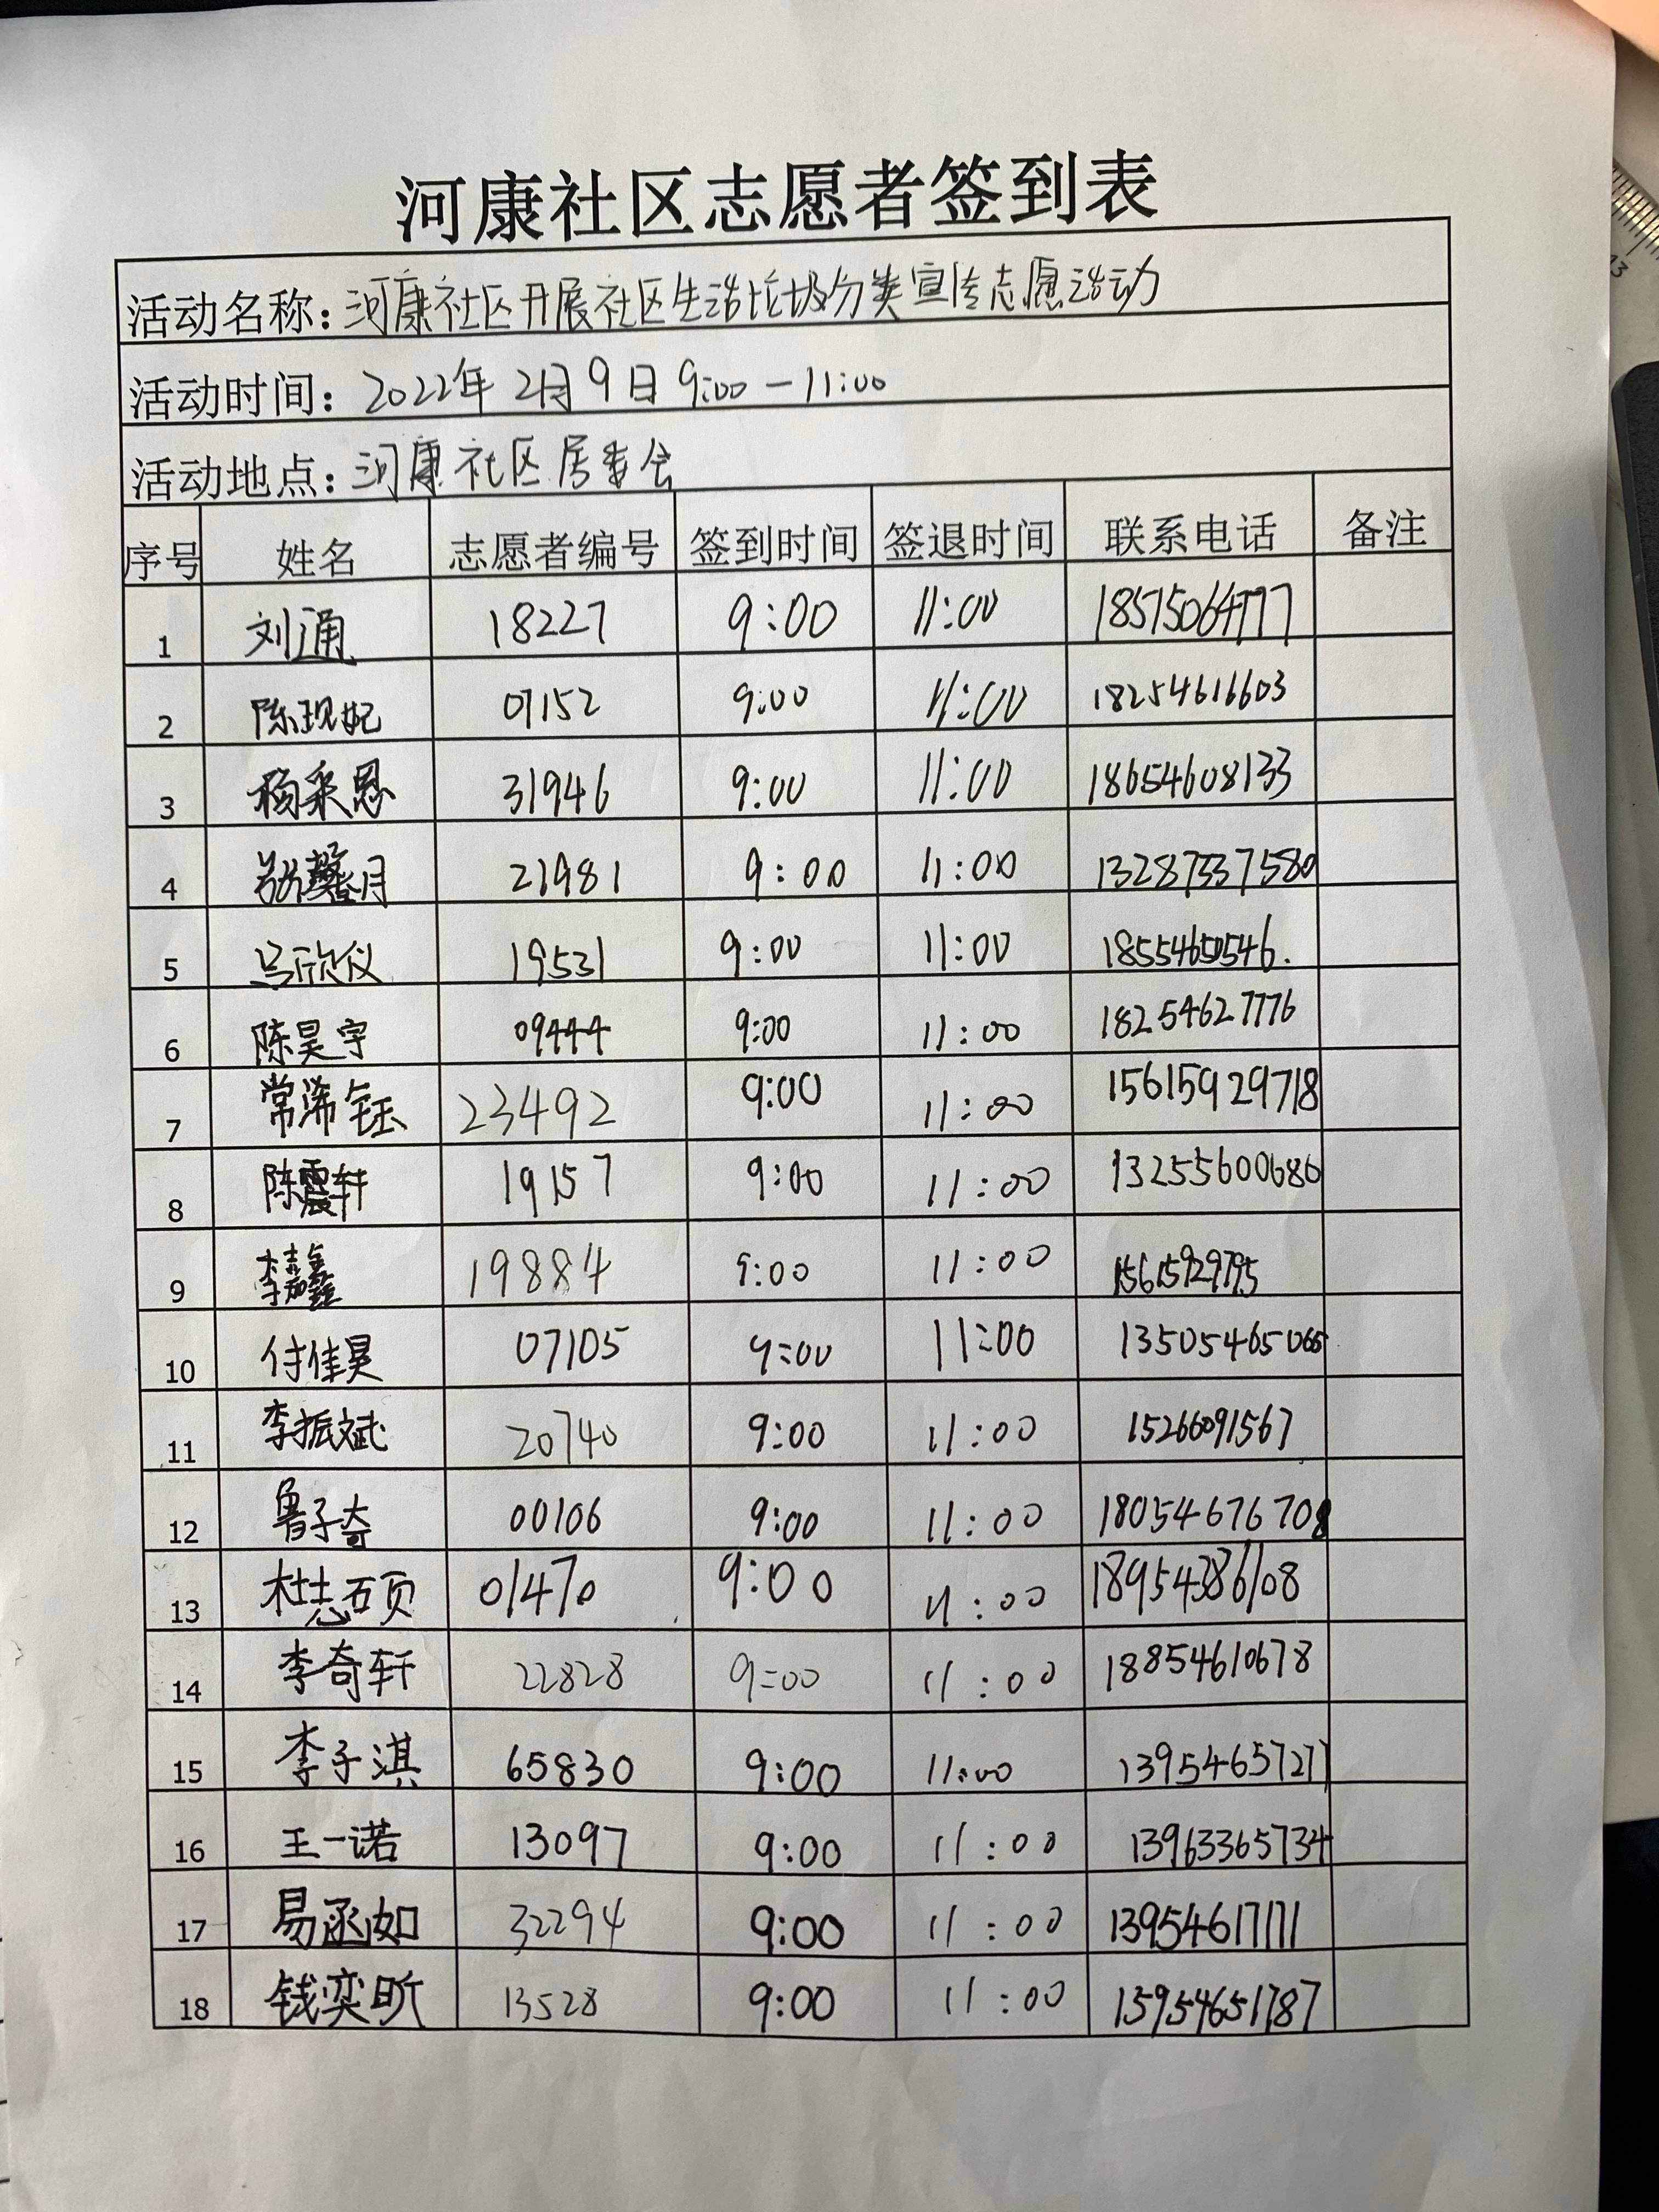 河康社区志愿者签到表
活动名称：河康社区开展社区生活垃圾分类宣传志愿活动
活动时间：2022年2月9日 9:00-11:00
活动地点：河康社区居委会
序号 姓名 志愿者编号 签到时间 签退时间 联系电话 备注
1 刘通 18227 9:00 11:00 18515064777
2 陈现妃 07152 9:00 11:00 18254616603
3 杨采恩 31946 9:00 11:00 18654608133
4 馨月 21981 9:00 11:00 13287337580
5 马欣仪 19531 9:00 11:00 18554650546.
6 陈昊宇 09444 9:00 11:00 18254627776
7 常浠钰 23492 9:00 11:00 15615929718
8 陈震轩 19157 9:00 11:00 13255600686
9 李嘉鑫 19884 9:00 11:00 15615929795
10 付佳昊 07105 9:00 11:00 13505465066
11 李振斌 20740 9:00 11:00 15266091567
12 鲁子奇 00106 9:00 11:00 18054676708
13 杜志硕 01470 9:00 11:00 18954386108
14 李奇轩 22828 9:00 11:00 18854610678
15 李子淇 65830 9:00 11:00 13954657277
16 王一诺 13097 9:00 11:00 13963365734
17 易函如 32294 9:00 11:00 13954617171
18 钱奕昕 13528 9:00 11:00 15954651787
13